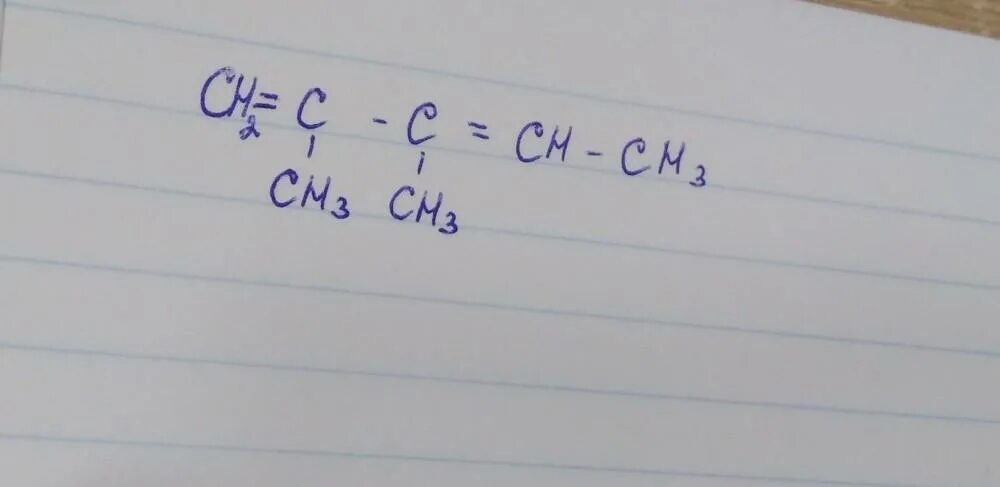 CH₂=C-C=CH-CH₃
CH₃ CH₃